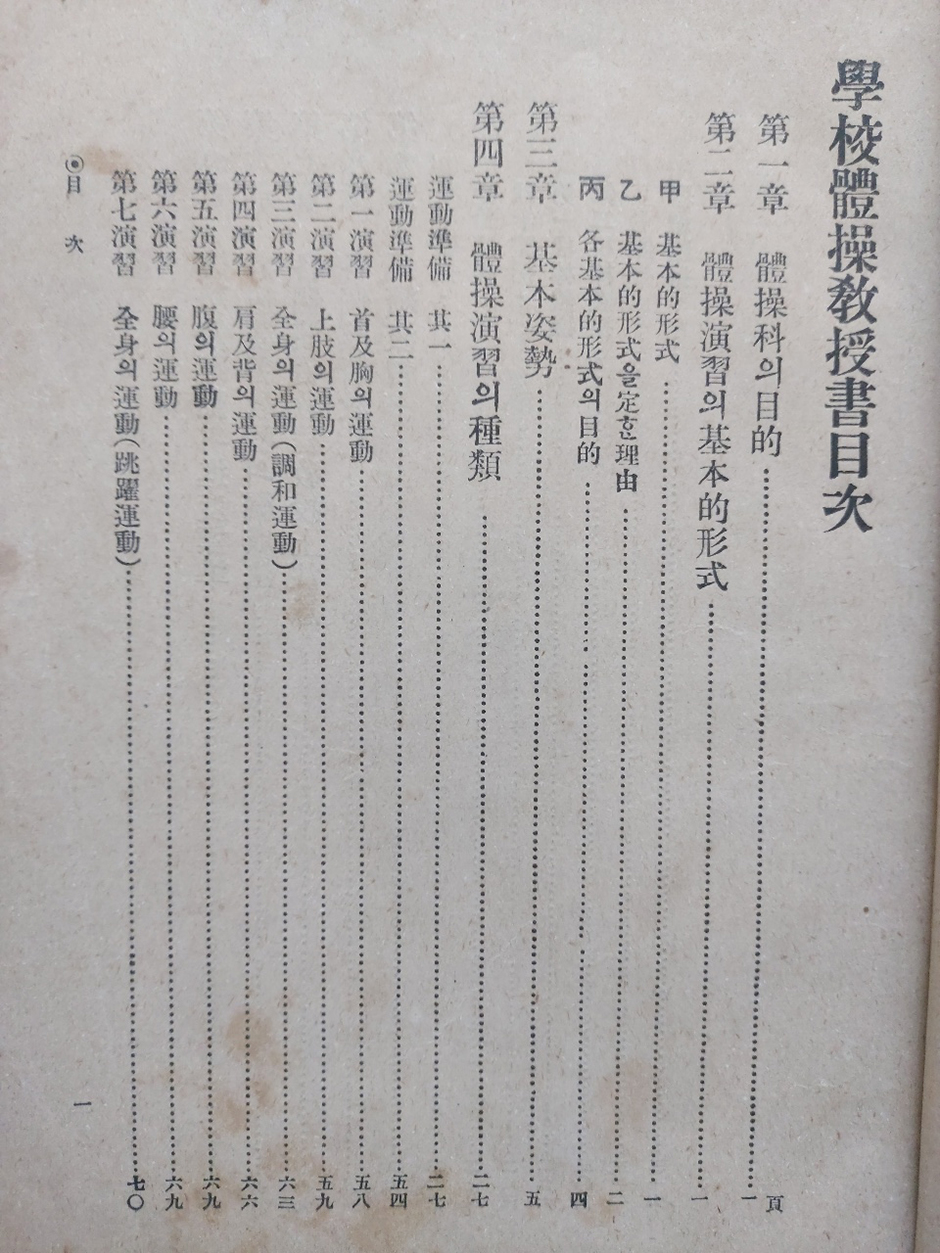 學校體操敎授書目次
頁
第一章 體操科의目的……一
第二章 體操演習의基本的形式……一
甲 基本的形式……一
乙 基本的形式을定ᄒᆞᆫ理由……二
丙 各基本的形式의目的……四
第三章 基本姿勢……五
第四章 體操演習의種類……二七
運動準備 其一……二七
運動準備 其二……五四
第一演習 首及胸의運動……五八
第二演習 上肢의運動……五九
第三演習 全身의運動(調和運動)……六三
第四演習 肩及背의運動……六六
第五演習 腹의運動……六九
第六演習 腰의運動……六九
第七演習 全身의運動(跳躍運動)……七〇
◉目 次
一